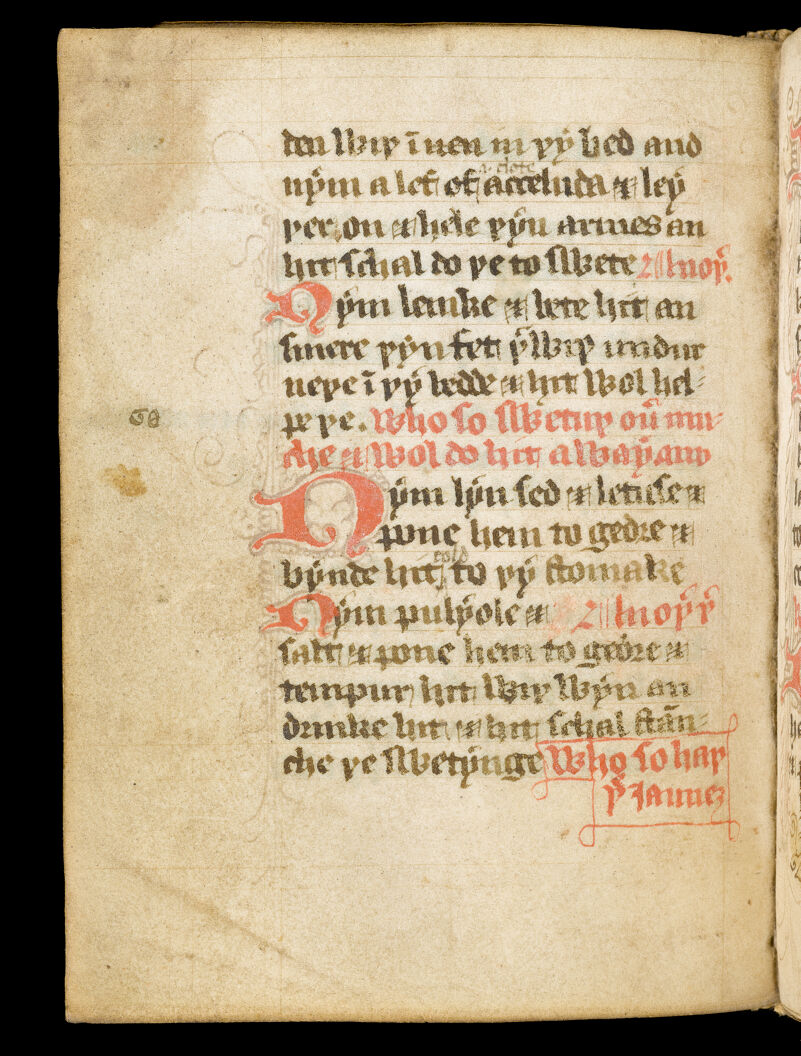 den wiþ ī nen in þy bed and
a clote
nym a lef of acceluda & ley
þer on & hele þyn armes an
hit schal do þe to swete Anoþ'.
Nym leuke & bete hit an
smere þyn fet þ'wiþ undur
neþe ī þy bedde & hit wol hel-
68
pe þe. Who so swetuþ ou' mu-
che & wol do hit away
Nym lyn sed & letuse &
pone hem to gedre &
cold
bynde hit to þy stomake
Nym pulyole & Anoþ'
salt & pone hem to gedre &
tempur hit wiþ wyn an
drinke hit & hit schal stān-
che þe swetynge Who so haþ
þ' Jaunez